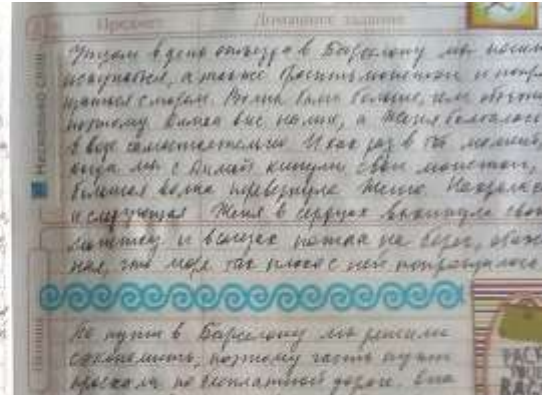 Предмет Домашнее задание
Утром в день отъезда в Барселону мы пошли
искупаться, а также бросить монетки и попро-
щаться с морем. Волны были больше, чем обычно
поэтому Димка вис на мне, а Женя болталась
в воде самостоятельно. И как раз в тот момент,
когда мы с Димой кинули свои монетки,
большая волна перевернула Женю. Накрыла и
и следующая. Женя в сердцах выкинула свою
монетку и в слезах пошла на берег, обижен-
ная, что море так плохо с ней попрощалось
По пути в Барселону мы решили
сэкономить, поэтому часть пути
проехали по бесплатной дороге. Она
PACK
YOUR
BAGS